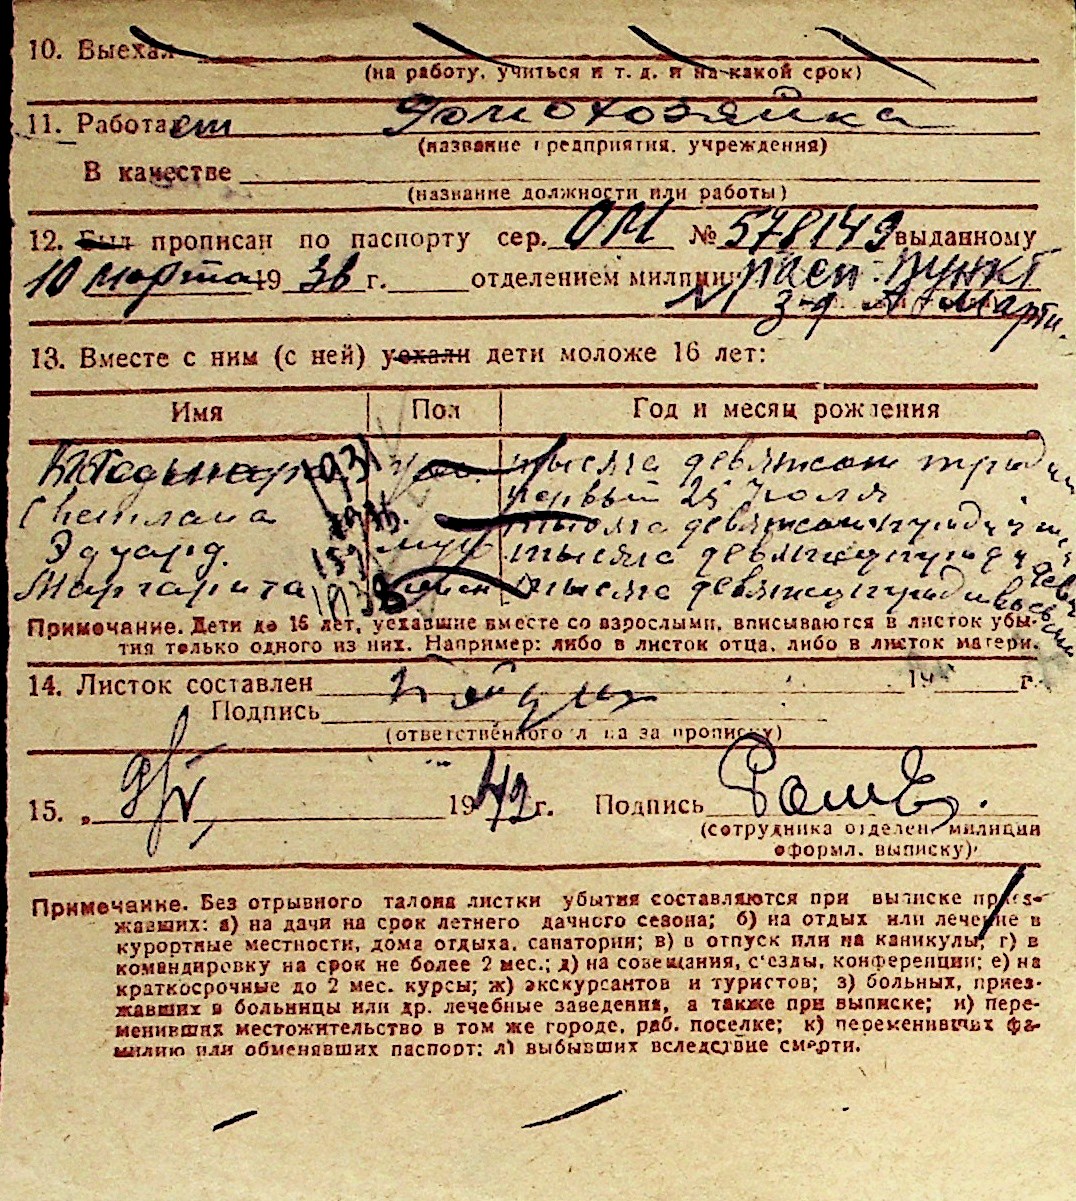 10. Выехал
(на работу, учиться и т. д. и на какой срок)
11. Работает Домохозяйка
(название предприятия, учреждения)
В качестве
(название должности или работы)
12. Был прописан по паспорту сер. ОМ № 578149 выданному
10 марта 1936 г. отделением милиции пасп. пункт
з-д Марти.
13. Вместе с ним (с ней) уехали дети моложе 16 лет:
Имя Пол Год и месяц рождения
1931 тысяча девятьсот тридц
первый 25 июля
Светлана тысяча девятьсот
Эдуард муж тысяча
Маргарита 1938 тысяча
Примечание. Дети до 16 лет, уехавшие вместе со взрослыми, вписываются в листок убы-
тия только одного из них. Например: либо в листок отца, либо в листок матери.
14. Листок составлен 19 г.
Подпись
(ответственного лица за прописку)
15. „ 1942 г. Подпись
(сотрудника отделен. милиции
оформл. выписку)
Примечание. Без отрывного талона листки убытия составляются при выписке приез-
жавших: а) на дачи на срок летнего дачного сезона; б) на отдых или лечение в
курортные местности, дома отдыха, санатории; в) в отпуск или на каникулы; г) в
командировку на срок не более 2 мес.; д) на совещания, с'езды, конференции; е) на
краткосрочные до 2 мес. курсы; ж) экскурсантов и туристов; з) больных, приез-
жавших в больницы или др. лечебные заведения, а также при выписке; и) пере-
менивших местожительство в том же городе, раб. поселке; к) переменивших фа-
милию или обменявших паспорт; л) выбывших вследствие смерти.